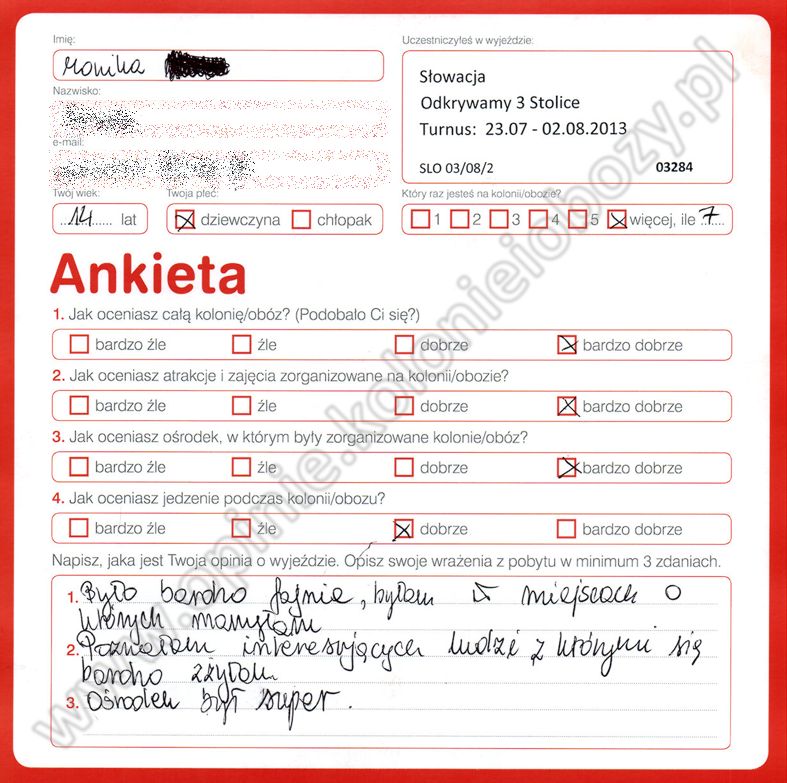 Imię:
Monika
Nazwisko:
e-mail:
Twój wiek:
14 lat
Twoja płeć:
dziewczyna chłopak
Uczestniczyłeś w wyjeździe:
Słowacja
Odkrywamy 3 Stolice
Turnus: 23.07 - 02.08.2013
SLO 03/08/2 03284
Który raz jesteś na kolonii/obozie?
1 2 3 4 5 więcej, ile 7
Ankieta
1. Jak oceniasz całą kolonię/obóz? (Podobało Ci się?)
bardzo źle źle dobrze bardzo dobrze
2. Jak oceniasz atrakcje i zajęcia zorganizowane na kolonii/obozie?
bardzo źle źle dobrze bardzo dobrze
3. Jak oceniasz ośrodek, w którym były zorganizowane kolonie/obóz?
bardzo źle źle dobrze bardzo dobrze
4. Jak oceniasz jedzenie podczas kolonii/obozu?
bardzo źle źle dobrze bardzo dobrze
Napisz, jaka jest Twoja opinia o wyjeździe. Opisz swoje wrażenia z pobytu w minimum 3 zdaniach.
1. Było bardzo fajnie, byłam w miejscach o
których marzyłam
2. Poznałam interesujących ludzi z którymi się
bardzo zżyłam
3. Ośrodek był super.
www.opinie.kolonieiobozy.pl